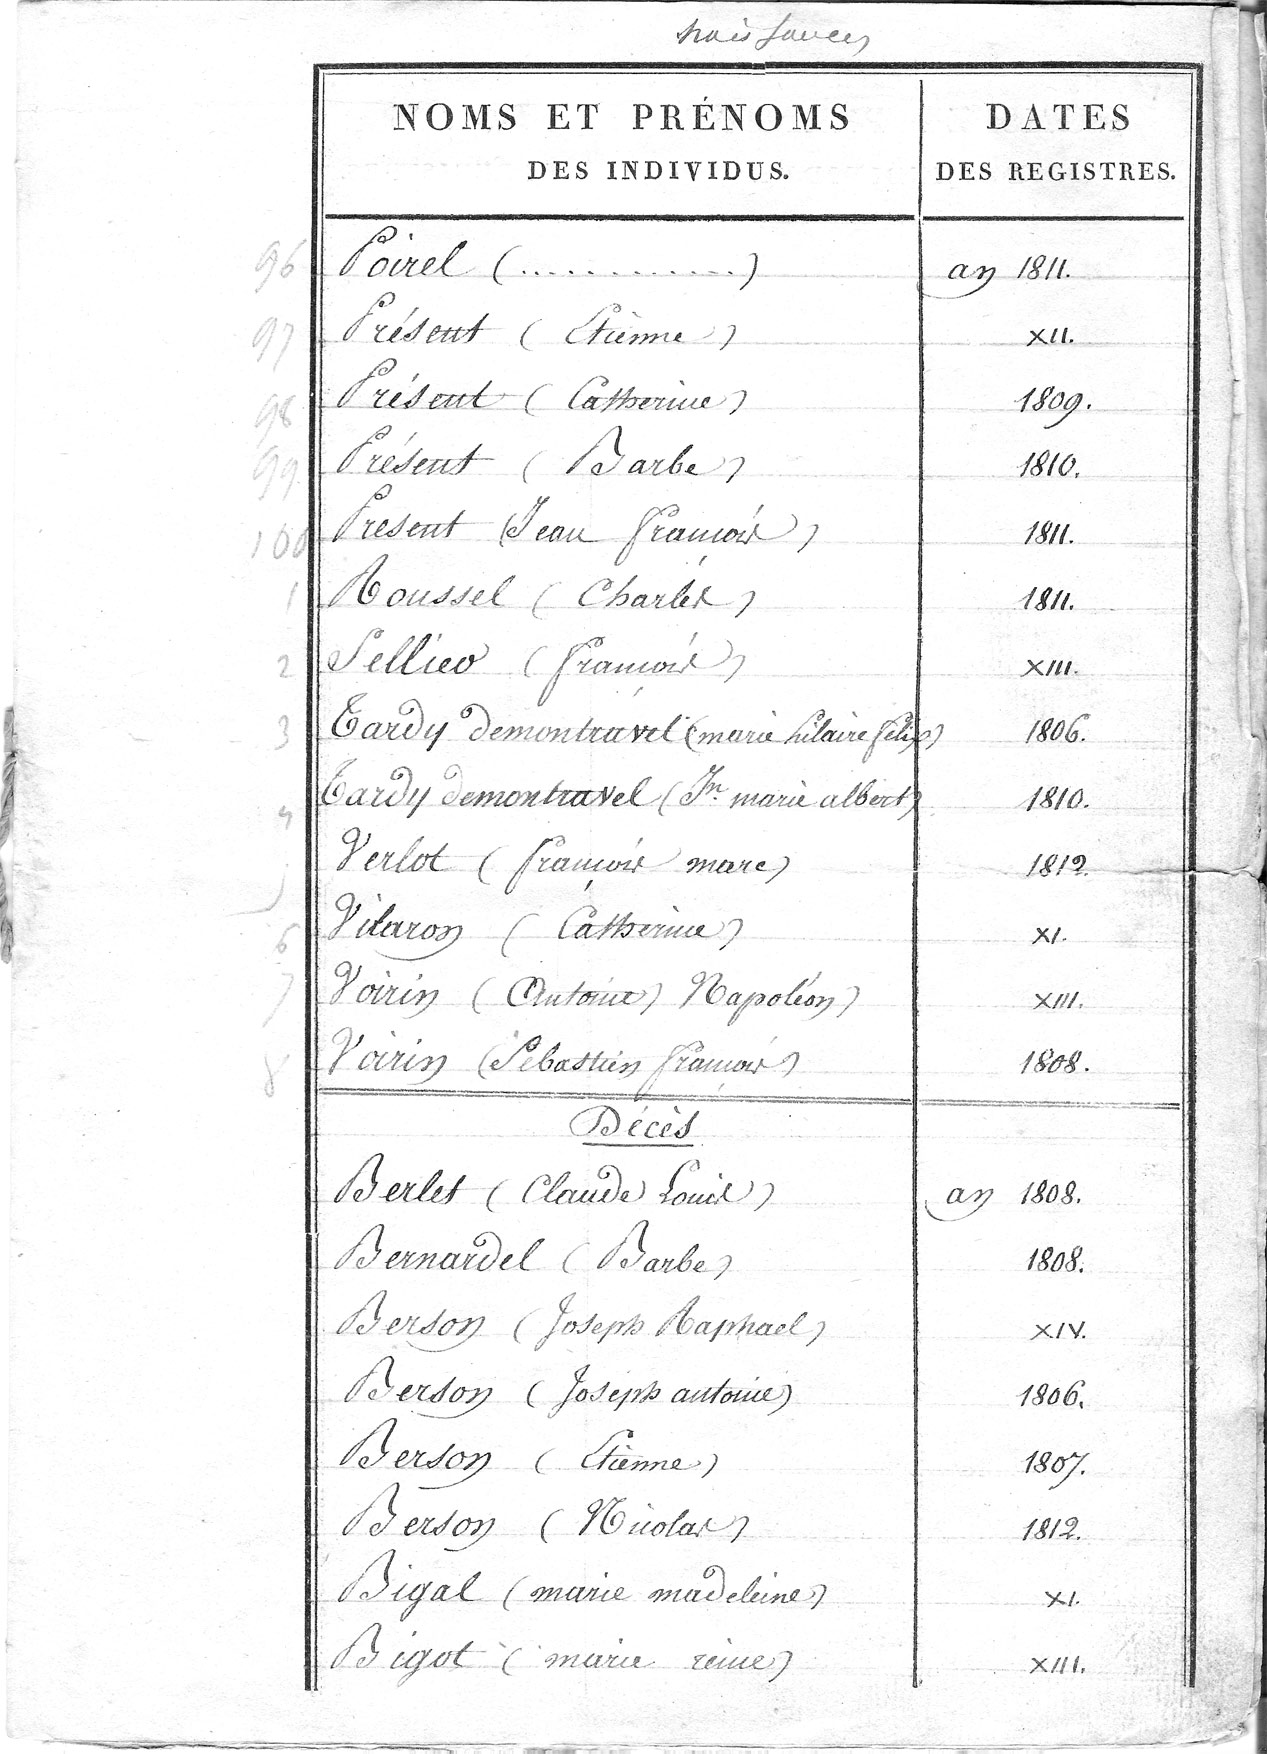 naissances
NOMS ET PRÉNOMS
DES INDIVIDUS.
DATES
DES REGISTRES.
96 Poirel (.............) an 1811.
97 Présent (Etienne) XII.
98 Présent (Catherine) 1809.
99 Présent (Barbe) 1810.
100 Present (Jean françois) 1811.
1 Roussel (Charles) 1811.
2 Sellier (françois) XIII.
3 Tardy demontravel (marie hilaire félix) 1806.
4 Tardy demontravel (Jn. marie albert) 1810.
Verlot (françois marc) 1812.
6 Vilaron (Catherine) XI.
7 Voirin (Antoine) Napoléon) XIII.
8 Voirin (Sébastien françois) 1808.
Décès
Berlet (Claude Louis) an 1808.
Bernardel (Barbe) 1808.
Berson (Joseph Raphael) XIV.
Berson (Joseph antoine) 1806.
Berson (Etienne) 1807.
Berson (Nicolas) 1812.
Bigal (marie madeleine) XI.
Bigot (marie reine) XIII.